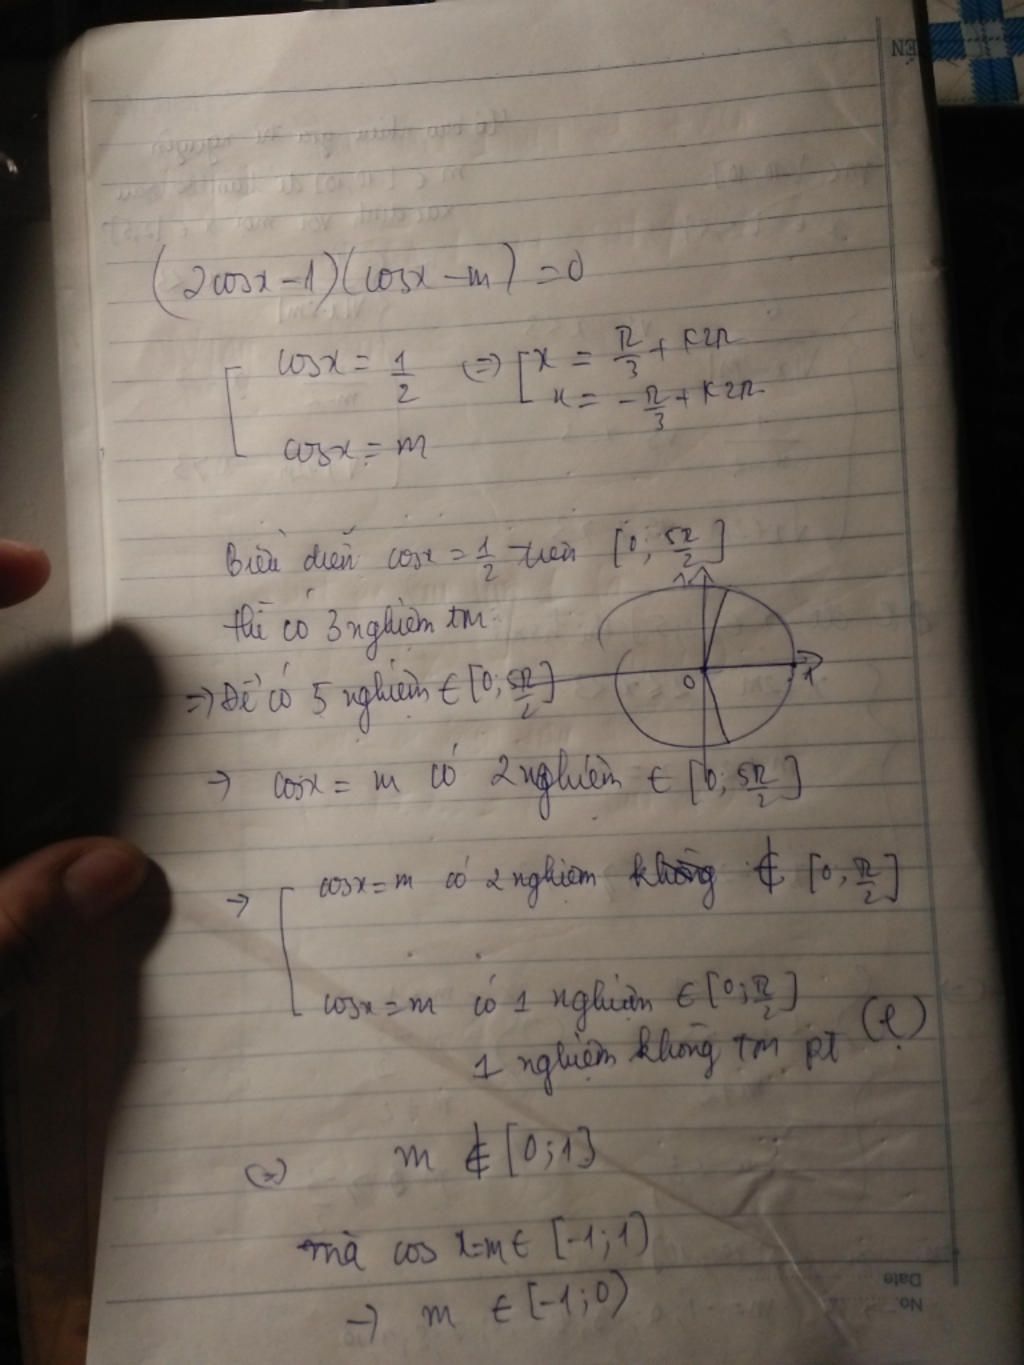 (2cosx-1)(cosx-m)=0
cosx = 1/2 (=) [ x = π/3 + k2π
x = -π/3 + k2π
cosx = m
Biểu diễn cosx = 1/2 trên [0; 5π/2]
thì có 3 nghiệm tm
=> Để có 5 nghiệm ∈ [0; 5π/2]
0 1
→ cosx = m có 2 nghiệm ∈ [0; 5π/2]
→ [ cosx=m có 2 nghiệm không ∉ [0; π/2]
cosx=m có 1 nghiệm ∈ [0; π/2]
1 nghiệm không tm pt (l)
(=) m ∉ [0;1]
mà cos x=m ∈ [-1;1)
→ m ∈ [-1;0)
No
Date